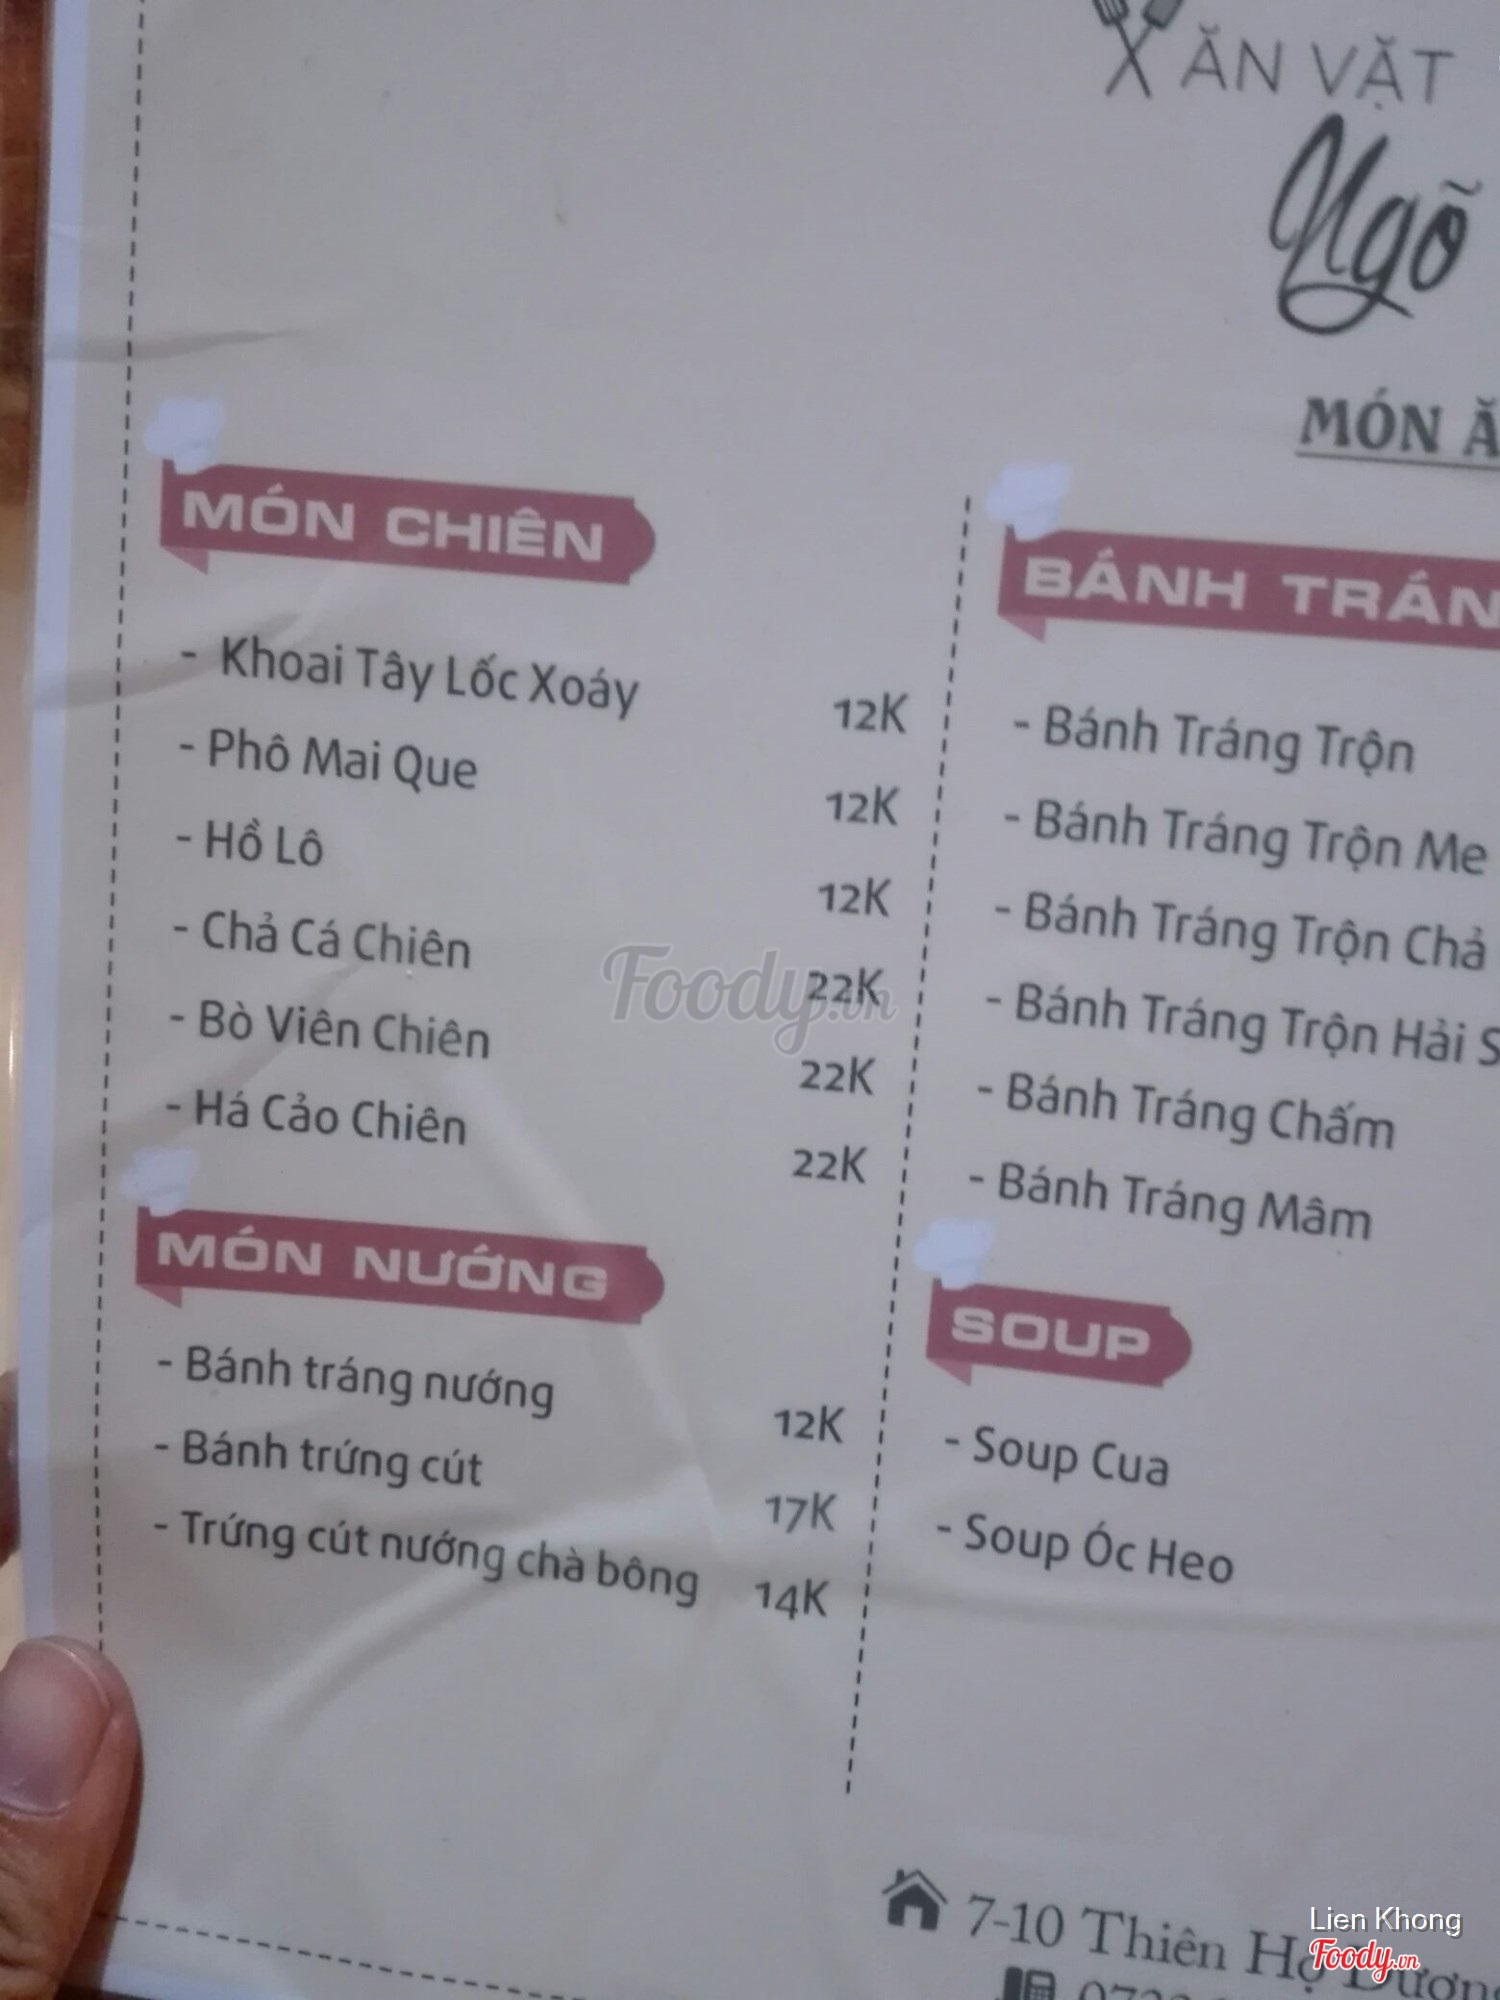 ĂN VẶT
Ngõ
MÓN Ă
MÓN CHIÊN
- Khoai Tây Lốc Xoáy 12K
- Phô Mai Que 12K
- Hồ Lô 12K
- Chả Cá Chiên 22K
- Bò Viên Chiên 22K
- Há Cảo Chiên 22K
MÓN NƯỚNG
- Bánh tráng nướng 12K
- Bánh trứng cút 17K
- Trứng cút nướng chà bông 14K
BÁNH TRÁN
- Bánh Tráng Trộn
- Bánh Tráng Trộn Me
- Bánh Tráng Trộn Chả
- Bánh Tráng Trộn Hải S
- Bánh Tráng Chấm
- Bánh Tráng Mâm
SOUP
- Soup Cua
- Soup Óc Heo
Foody.vn
7-10 Thiên Hộ Dương
Lien Khong
Foody.vn